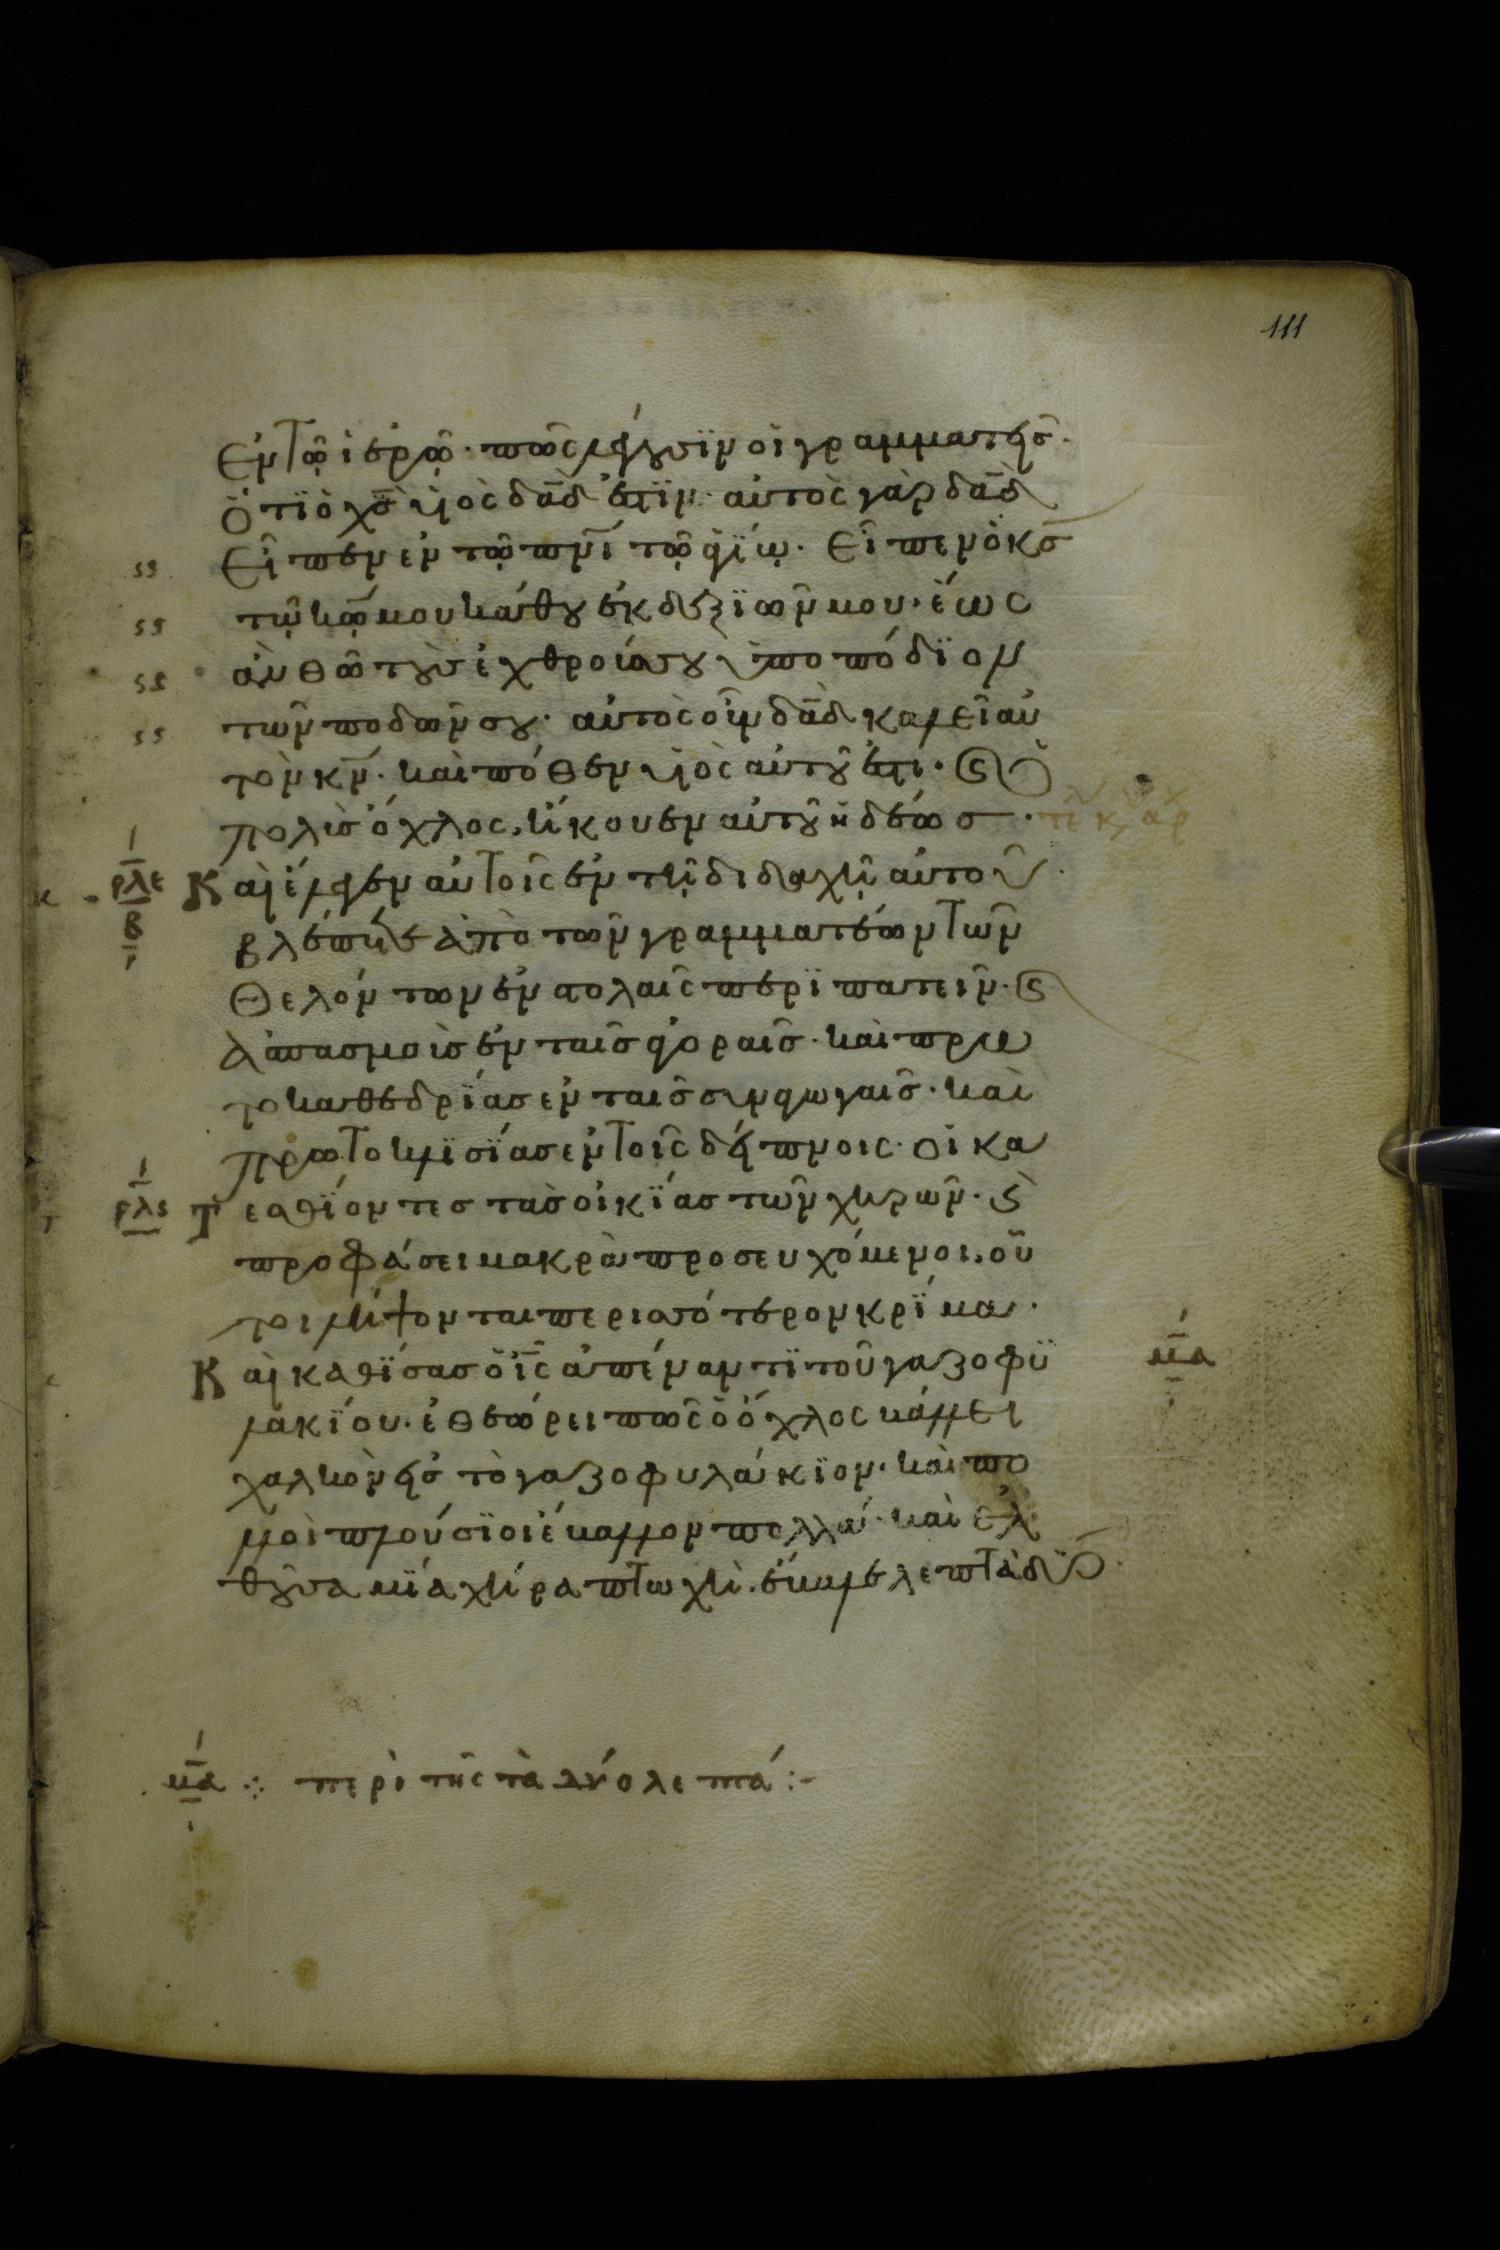 111
ἐν τῷ ἱερῷ· πῶς λέγουσϊν οἱ γραμματεῖς·
ὅτϊ ὁ χς υἱὸς δαδ ἐστϊν· αὐτὸς γὰρ δαδ
εἶπεν ἐν τῷ πνι τῷ ἁγΐῳ· εἶπεν ὁ κς
τῷ κω μου κάθου ἐκ δεξϊῶν μου· ἕως
ἂν θῶ τοὺς ἐχθρούς σου ὑποπόδϊον
τῶν ποδῶν σου· αὐτὸς οὖν δαδ καλεῖ αὐ
τὸν κν· καὶ πόθεν υἱὸς αὐτοῦ ἐστι· ϛ ὁ
πολὺς ὄχλος, ἤκουεν αὐτοῦ ἡδέως·
ρλε Καὶ ἔλεγεν αὐτοῖς ἐν τῇ διδαχῇ αὐτοῦ·
β βλέπετε ἀπὸ τῶν γραμματέων τῶν
θελόντων ἐν στολαῖς περϊπατεῖν· ϛ
ἀσπασμοὺς ἐν ταῖς ἀγοραῖς· καὶ πρω
τοκαθεδρΐας ἐν ταῖς συναγωγαῖς· καὶ
πρωτοκλϊσΐας ἐν τοῖς δείπνοις· οἱ κα
ρλϛ τεσθΐοντες τὰς οἰκΐας τῶν χηρῶν· ϛ
προφάσει μακρὰ προσευχόμενοι, οὗ
τοι λήψονται περισσότερον κρΐμα·
Καὶ καθΐσας ὁ ις ἀπέναντϊ τοῦ γαζοφϋ μα
λακΐου· ἐθεώρει πῶς ὁ ὄχλος βάλλει
χαλκὸν εἰς τὸ γαζοφυλάκϊον· καὶ πο
λλοὶ πλούσϊοι ἔβαλλον πολλά· καὶ ἐλ
θοῦσα μΐα χήρα πτωχὴ, ἔβαλε λεπτὰ δύο
μα ·:· περὶ τῆς τὰ δύο λεπτά :-